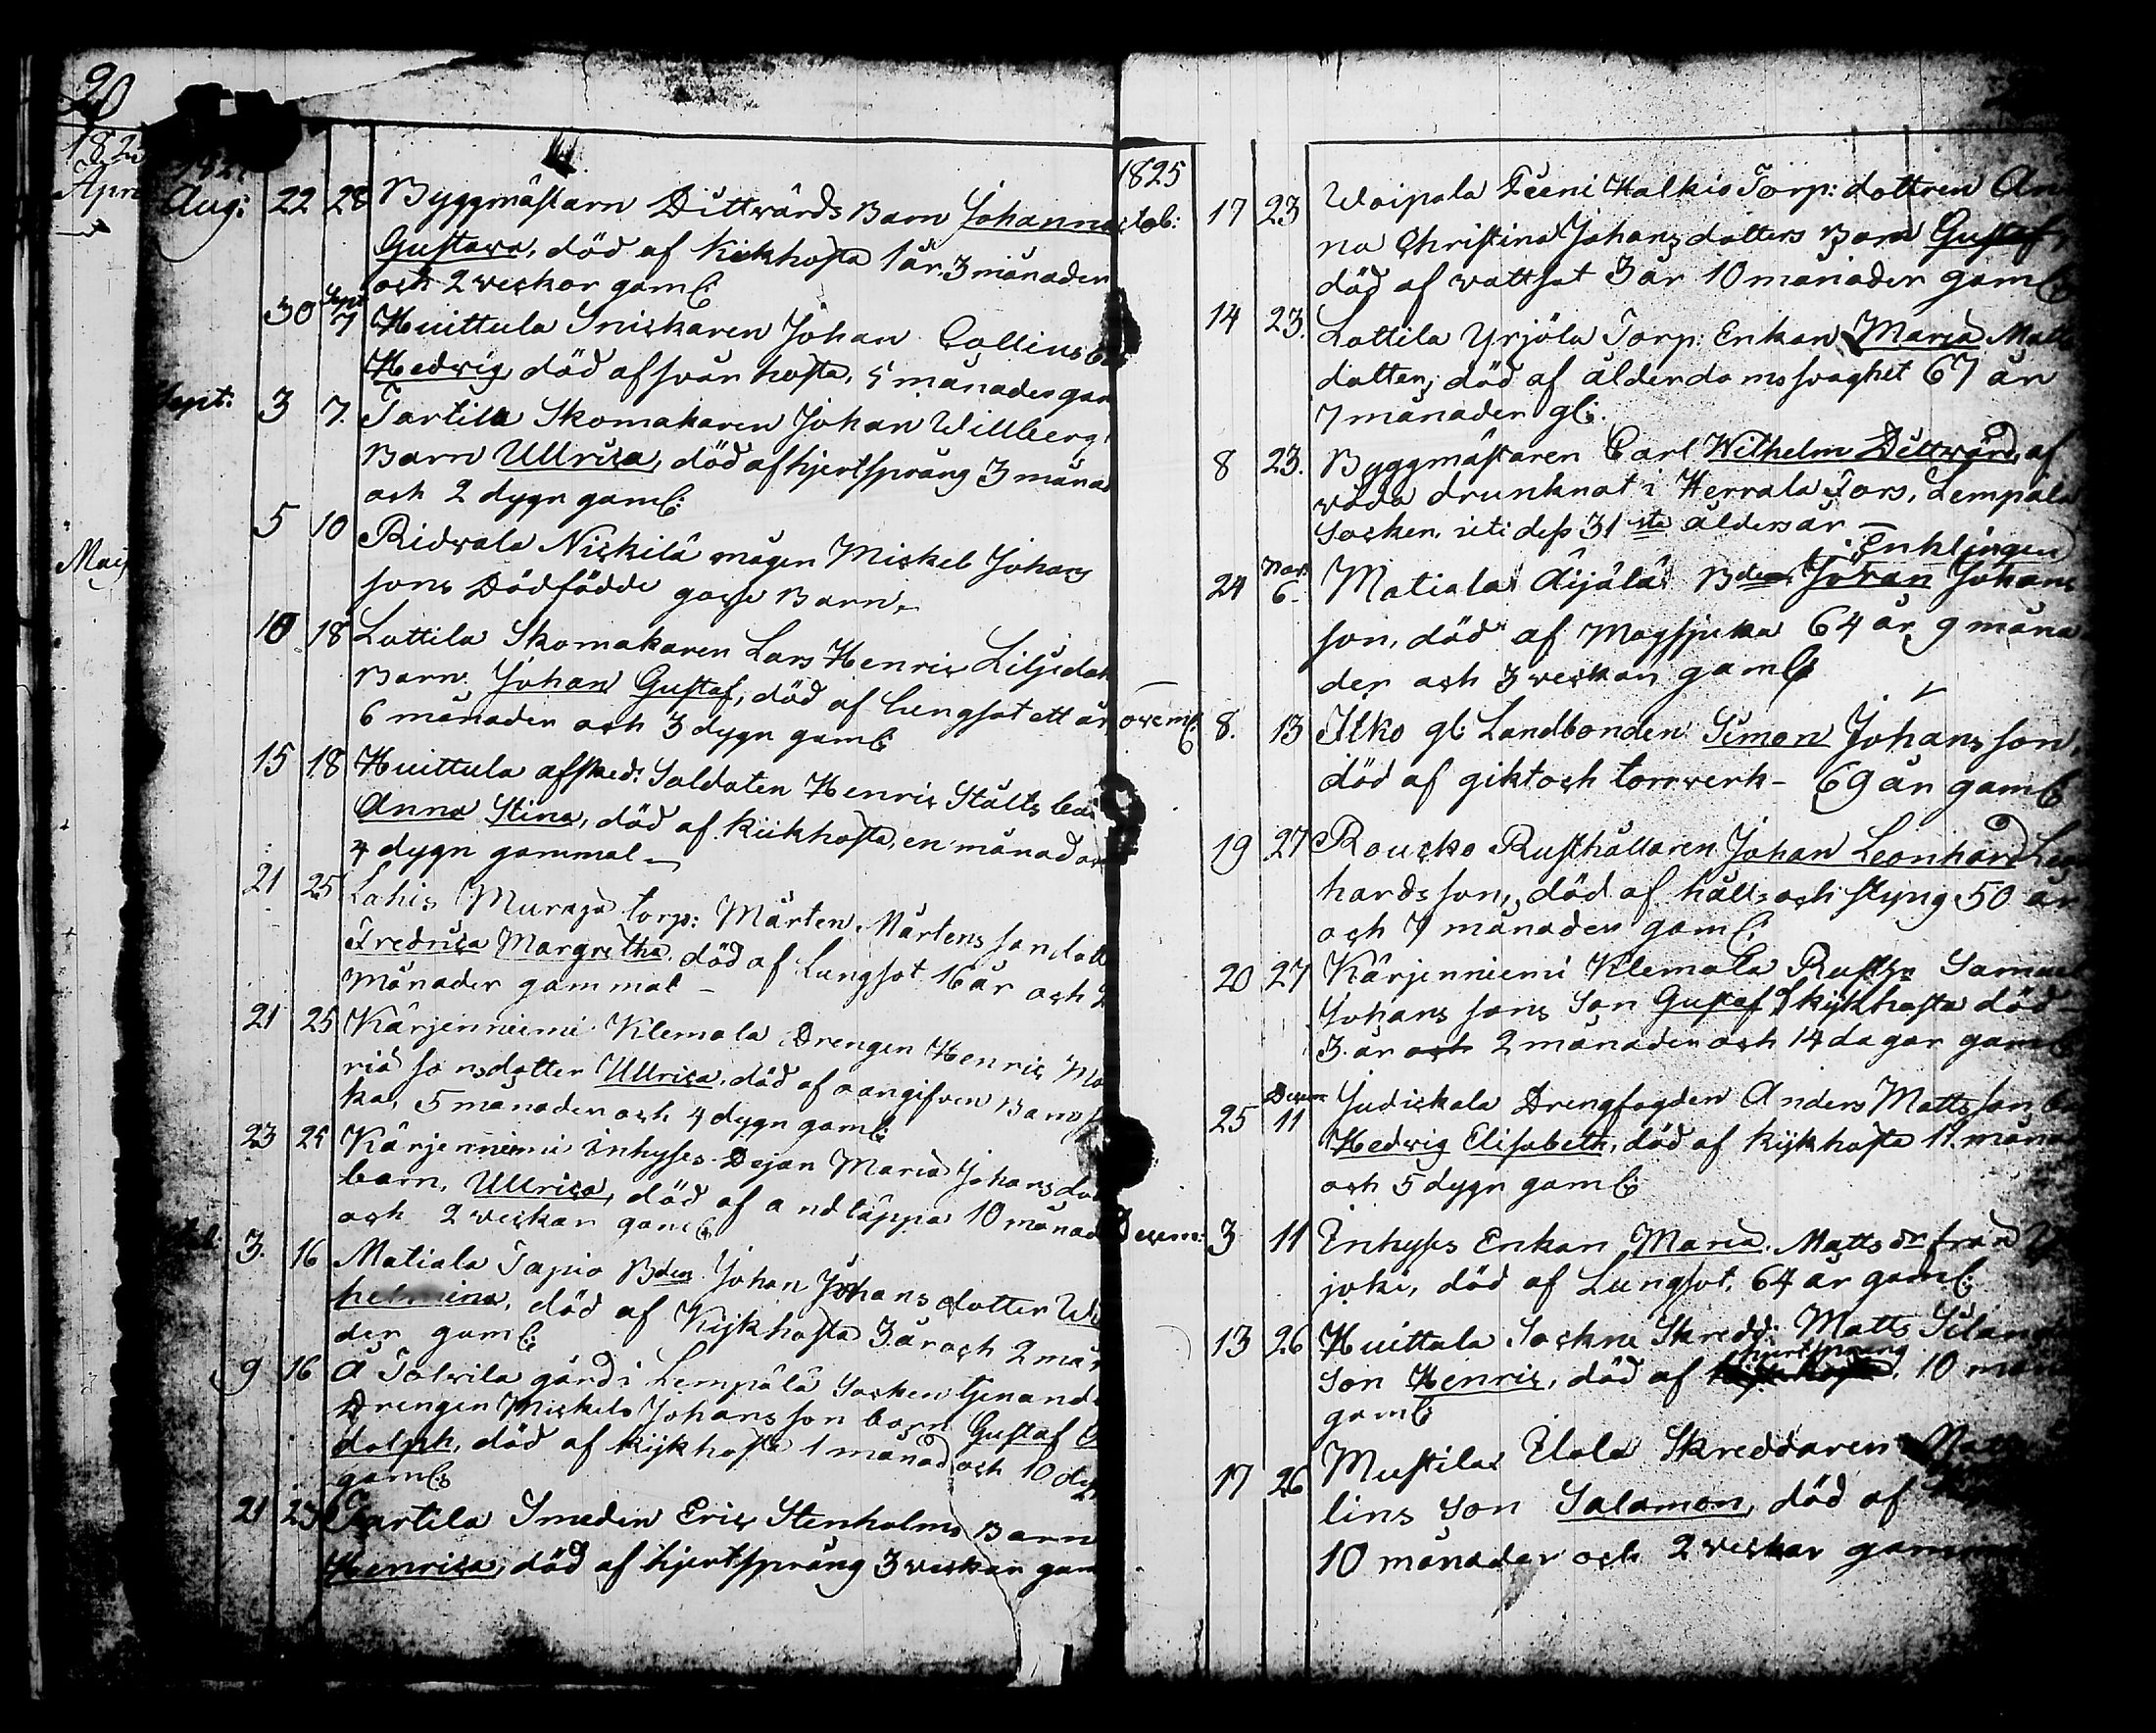 20
182
Apri
May
182
Aug: 22 28 Byggmästarn Dittwärds Barn Johanna
Gustava, död af Kikhosta 1 år 3 månader
och 2 veckor gaml:
30 Sept 7 Huittula Snickaren Johan Collins
Hedvig, död af svår hosta, 5 månader gam
Sept: 3 7. Tartila Skomakaren Johan Willberg
Barn Ullrica, död af hjertsprång 3 måna
och 2 dygn gaml:
5 10 Ridvala Nickilä mågen Mickel Johans
sons Dödfödde gosse Barn.
10 18 Lottila Skomakaren Lars Henric Liljedah
Barn Johan Gustaf, död af lungsot ett år
6 månader och 3 dygn gaml:
15 18 Huittula afsked: Soldaten Henric Stålts ba
Anna Stina, död af kiikhosta, en månad oc
4 dygn gammal
21 25 Lahis Muraja torp: Mårten Mårtens son dott
Fredrica Margretha död af Lungsot 16 år och
Månader gammal
21 25 Kärjenniemi Klemola Drengen Henric Ma
ka, 5 månader och 4 dygn gaml:
rias sonsdotter Ullrica, död af oangifven Barns
23 25 Kärjenniemi inhyses Dejan Maria Johansdot
barn, Ullrica, död af andtäppa 10 månad
och 2 veckor gaml:
3. 16 Matiala Tapio Bden Johan Johans dotter Wil
helmina, död af Kijkhosta 3 år och 2 mån
der gaml:
9 16 Å Tolvila gård i Lempälä Socken tjenande
Drengen Mickels Johansson barn Gustaf
dolph, död af kijkhosta 1 månad och 10 dy
gaml:
21 23 Tartila Smeden Eric Stenholms Barn
Henrica, död af hjertsprång 3 veckor gam
1825
ctob: 17 23 Woipala Feeni Halkio Torp: dottren An
na Christina Johansdotters Barn Gustaf
död af vattsot 3 år 10 månader gaml:
14 23. Lottila Yrjölä Torp: Enkan Maria Matts
dotter, död af ålderdomssvaghet 67 år
7 månader gl:
8 23. Byggmästaren Carl Wilhelm Dittwärd, af
våda drunknat i Herrala Fors, Lempälä
Socken, uti dess 31sta ålders år
Enklingen
24 Nov 6 Matiala Äijälä Bden Johan Johans
son, död af Magsjuka 64 år 9 måna
der och 3 veckor gaml:
ovemb: 8. 13 Ilko gl: Landbonden Simon Johansson,
död af gikt och torrverk - 69 år gaml:
19 27 Roucko Rusthållaren Johan Leonhard Leon
hardsson, död af håll och styng 50 år
och 7 månader gaml:
20 27 Kärjenniemi Klemola Rusth: Samuel
Johanssons Son Gustaf af kijkhosta död
3 år och 2 månader och 14 dagar gaml:
25 Decem 11 Judickala Drengfogden Anders Mattsson ba
Hedvig Elisabeth, död af kijkhosta 11 måna
och 5 dygn gaml:
Decem: 3 11 Inhyses Enkan Maria Mattsdr från
joki, död af Lungsot, 64 år gaml:
13 26 Huittula Sockne Skredd: Matts Silan
hjertsprång
Son Henric, död af 10 mån
gaml:
17 26 Mustila Elala Skreddaren Matts
lins Son Salamon, död af
10 månader och 2 veckor gamm